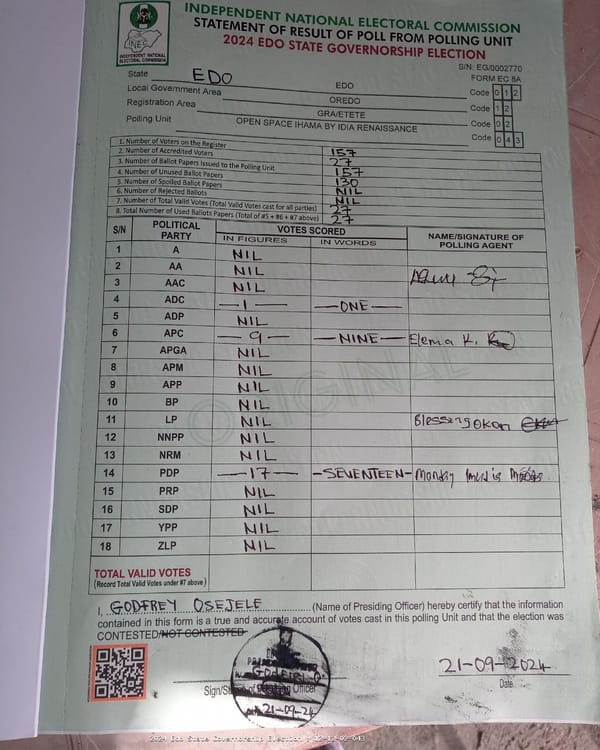 INDEPENDENT NATIONAL ELECTORAL COMMISSION
STATEMENT OF RESULT OF POLL FROM POLLING UNIT
2024 EDO STATE GOVERNORSHIP ELECTION
INEC
INDEPENDENT NATIONAL
ELECTORAL COMMISSION
S/N: EG/0002770
FORM EC 8A
State EDO EDO Code 0 1 2
Local Government Area OREDO Code 1 2
Registration Area GRA/ETETE Code 0 2
Polling Unit OPEN SPACE IHAMA BY IDIA RENAISSANCE Code 0 4 3
1. Number of Voters on the Register 157
2. Number of Accredited Voters 27
3. Number of Ballot Papers Issued to the Polling Unit 157
4. Number of Unused Ballot Papers 130
5. Number of Spoiled Ballot Papers NIL
6. Number of Rejected Ballots NIL
7. Number of Total Valid Votes (Total Valid Votes cast for all parties) 27
8. Total Number of Used Ballots Papers (Total of #5 + #6 + #7 above) 27
S/N POLITICAL PARTY VOTES SCORED NAME/SIGNATURE OF POLLING AGENT
IN FIGURES IN WORDS
1 A NIL
2 AA NIL
3 AAC NIL
4 ADC —1— —ONE—
5 ADP NIL
6 APC —9— —NINE— Elema K.
7 APGA NIL
8 APM NIL
9 APP NIL
10 BP NIL
11 LP NIL Blessing Okon
12 NNPP NIL
13 NRM NIL
14 PDP —17— —SEVENTEEN— Monday
15 PRP NIL
16 SDP NIL
17 YPP NIL
18 ZLP NIL
ORIGINAL
TOTAL VALID VOTES
(Record Total Valid Votes under #7 above)
I, GODFREY OSEJELE (Name of Presiding Officer) hereby certify that the information
contained in this form is a true and accurate account of votes cast in this polling Unit and that the election was
CONTESTED/NOT CONTESTED
21-09-2024
Sign/ of Officer Date
21-09-24
2024 Edo State Governorship Election